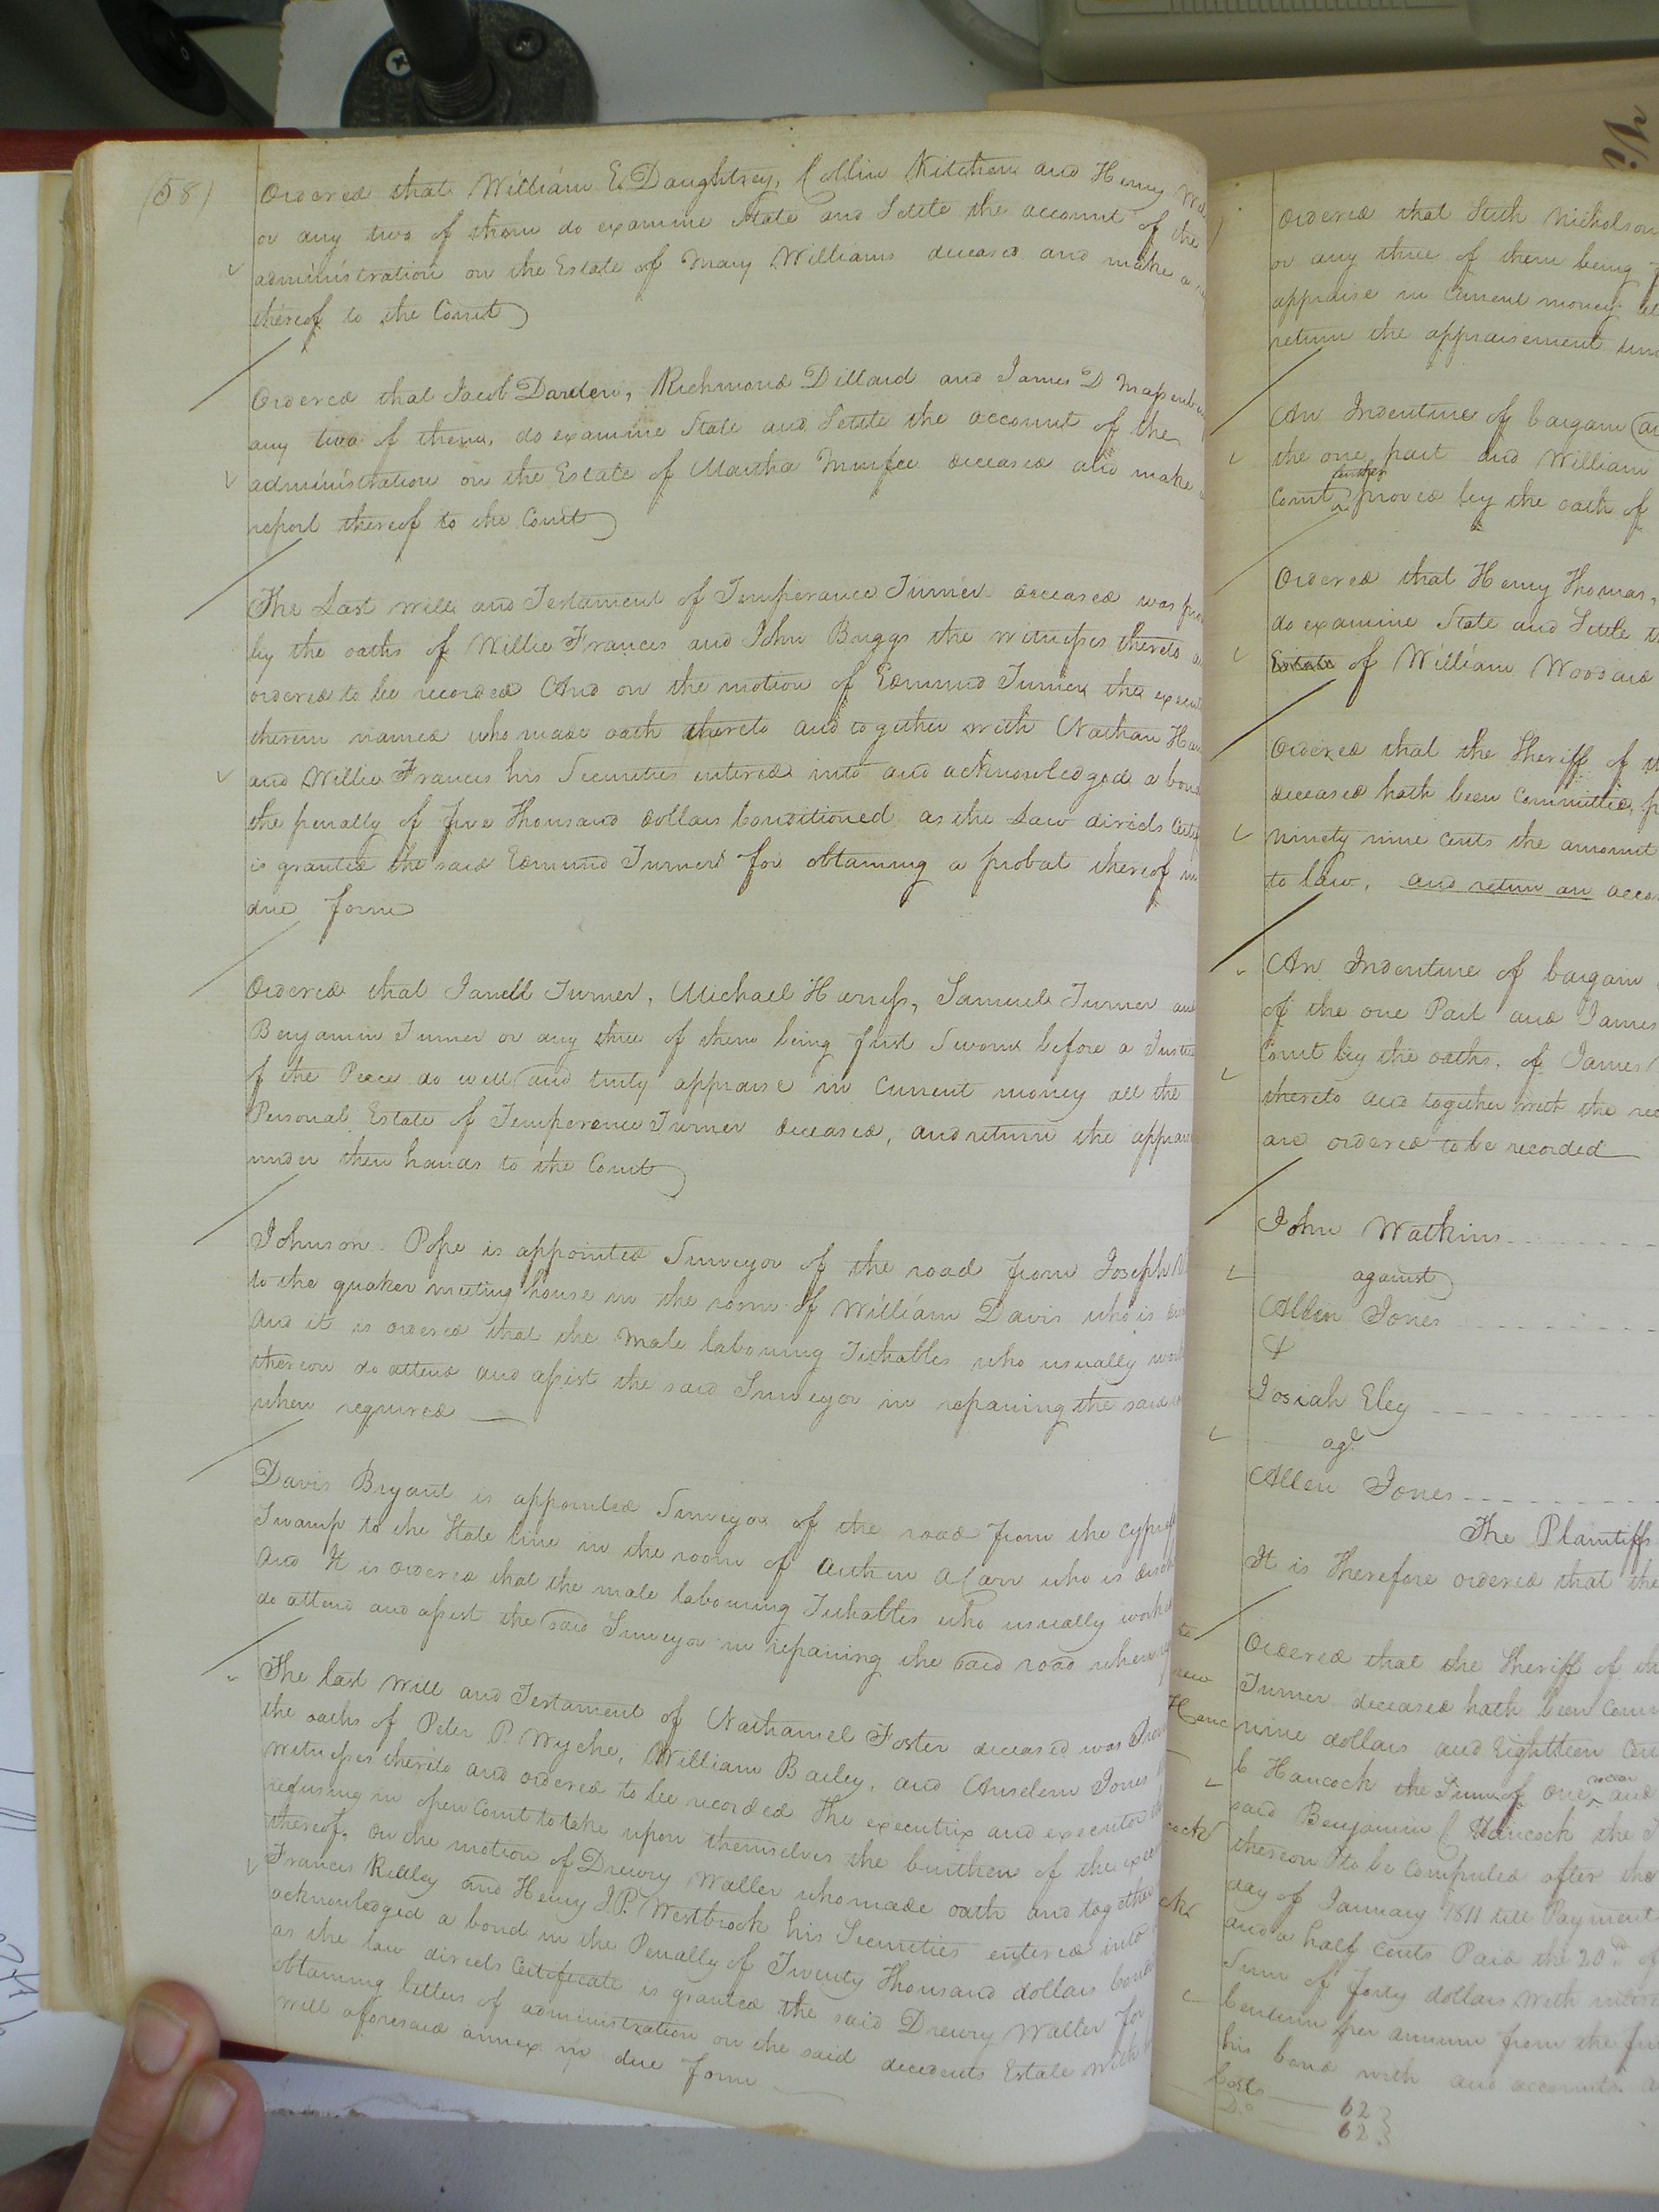 (58)
Ordered that William E. Daughtrey, Collin Kitchen and Henry
or any two of them do examine State and Settle the account of the
administration on the Estate of Mary Williams deceased and make a
thereof to the Court
Ordered that Jacob Darden, Richmond Dillard and James D
any two of them, do examine State and Settle the account of the
administration on the Estate of Martha Murfee deceased and make
report thereof to the Court
The Last will and Testament of Temperance Turner deceased was
by the oaths of Willie Francis and John Buggs the witnesses thereto
ordered to be recorded And on the motion of Edmund Turner the
therein named who made oath thereto and together with Nathan
and Willie Francis his Securities entered into and acknowledged a
the penalty of five Thousand dollars Conditioned as the Law directs
is granted the said Edmund Turner for obtaining a probat thereof in
due form
Ordered that Jarrell Turner, Michael Harriss, Samuel Turner
Benjamin Turner or any three of them being first Sworn before a
of the Peace do well and truly appraise in Current money all the
Personal Estate of Temperance Turner deceased, and return the
under their hands to the Court
Johnson Pope is appointed Surveyor of the road from Joseph
to the quaker meeting house in the room of William Davis who is
And it is ordered that the male labouring Tithables who usually
thereon do attend and assist the said Surveyor in repairing the said
when required
Davis Bryant is appointed Surveyor of the road from the
Swamp to the State line in the room of who is
And It is ordered that the male labouring Tithables who usually
do attend and assist the said Surveyor in repairing the said road when
The last Will and Testament of Nathaniel Foster deceased was
the oaths of Peter P. Wyche, William Bailey, and Anselem Jones
witnesses thereto and ordered to be recorded The executrix and executor
refusing in open Court to take upon themselves the burthen of the
thereof, on the motion of Drewry Waller who made oath and together
Francis Ridley and Henry J. P. Westbrook his Securities entered into
acknowledged a bond in the Penalty of Twenty Thousand dollars
as the law directs Certificate is granted the said Drewry Waller for
obtaining letters of administration on the said decedents Estate with
will aforesaid annex in due form
Ordered that Seth Nicholson
or any three of them being
appraise in Current money
return the appraisement
An Indenture of bargain
the one part and William
further
Court proved by the oath of
Ordered that Henry Thomas,
do examine State and Settle
Estate of William Woodard
Ordered that the Sheriff of
deceased hath been Committed,
ninety nine Cents the amount
to law, and return an
An Indenture of bargain
of the one Part and James
Court by the oaths, of James
thereto and together with the
are ordered to be recorded
John Watkins
against
Allen Jones
&
Josiah Eley
agt
Allen Jones
The Plaintiffs
It is Therefore ordered that the
Ordered that the Sheriff of
Turner deceased hath been
nine dollars and Eighteen
Hancock the Sum of One and
said Benjamin C Hancock the
thereon to be Computed after the
day of January 1811 till Payment
and a half Cents Paid the 20th of
Sum of forty dollars with
Centum per annum from the
his bond with and accounts
Costs 62
Do 62